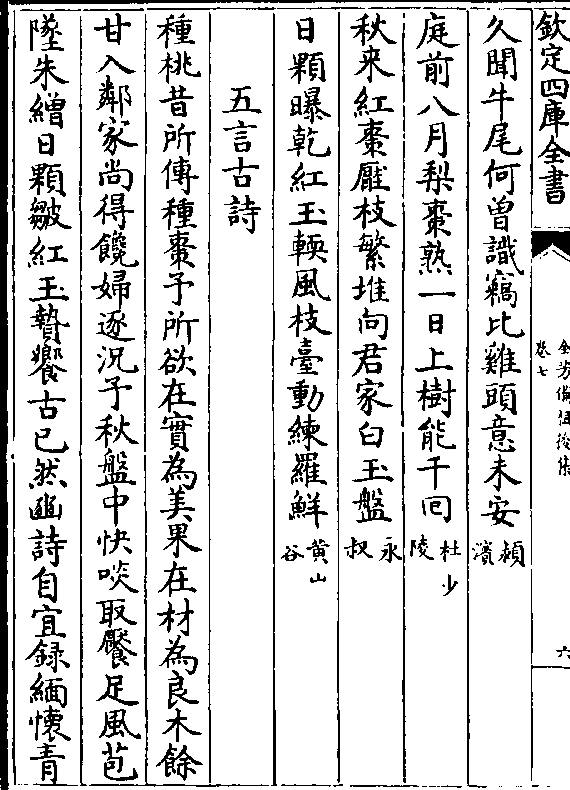 欽定四庫全書
全芳備祖後集
卷七
六
久聞牛尾何曽識竊比雞頭意未安 潁濱
庭前八月梨棗熟一日上樹能千囘 杜少陵
秋来紅棗壓枝繁堆向君家白玉盤 永叔
日顆曝乾紅玉輭風枝臺動綠羅鮮 黄山谷
五言古詩
種桃昔所傳種棗予所欲在實為美果在材為良木餘
甘入鄰家尚得饞婦逐况予秋盤中快啖取饜足風苞
墜朱繒日顆皺紅玉贄饗古已然豳詩自宜録緬懷青